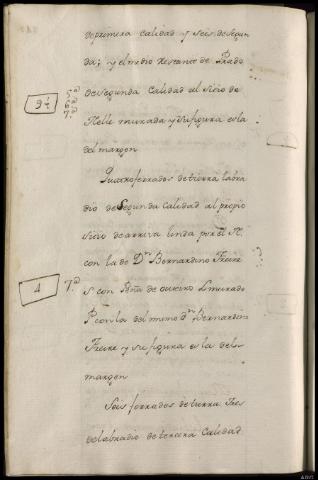 de primera Calidad y seis de segun
da; y el medio restante de Prado
de segunda Calidad al sitio de
murada y su figura es la
del margen
9½
5.ª
6.ª
7.ª
Quatro ferrados de tierra labra
dio de Segunda Calidad al propio
sitio de arriva linda por el N.
con la de D.n Bernardino Freire
S. con de murado
P. con la del mismo d.n Bernardino
Freire y su figura es la del
margen
4
7.ª
Seis ferrados de tierra tres
de labradio de tercera Calidad